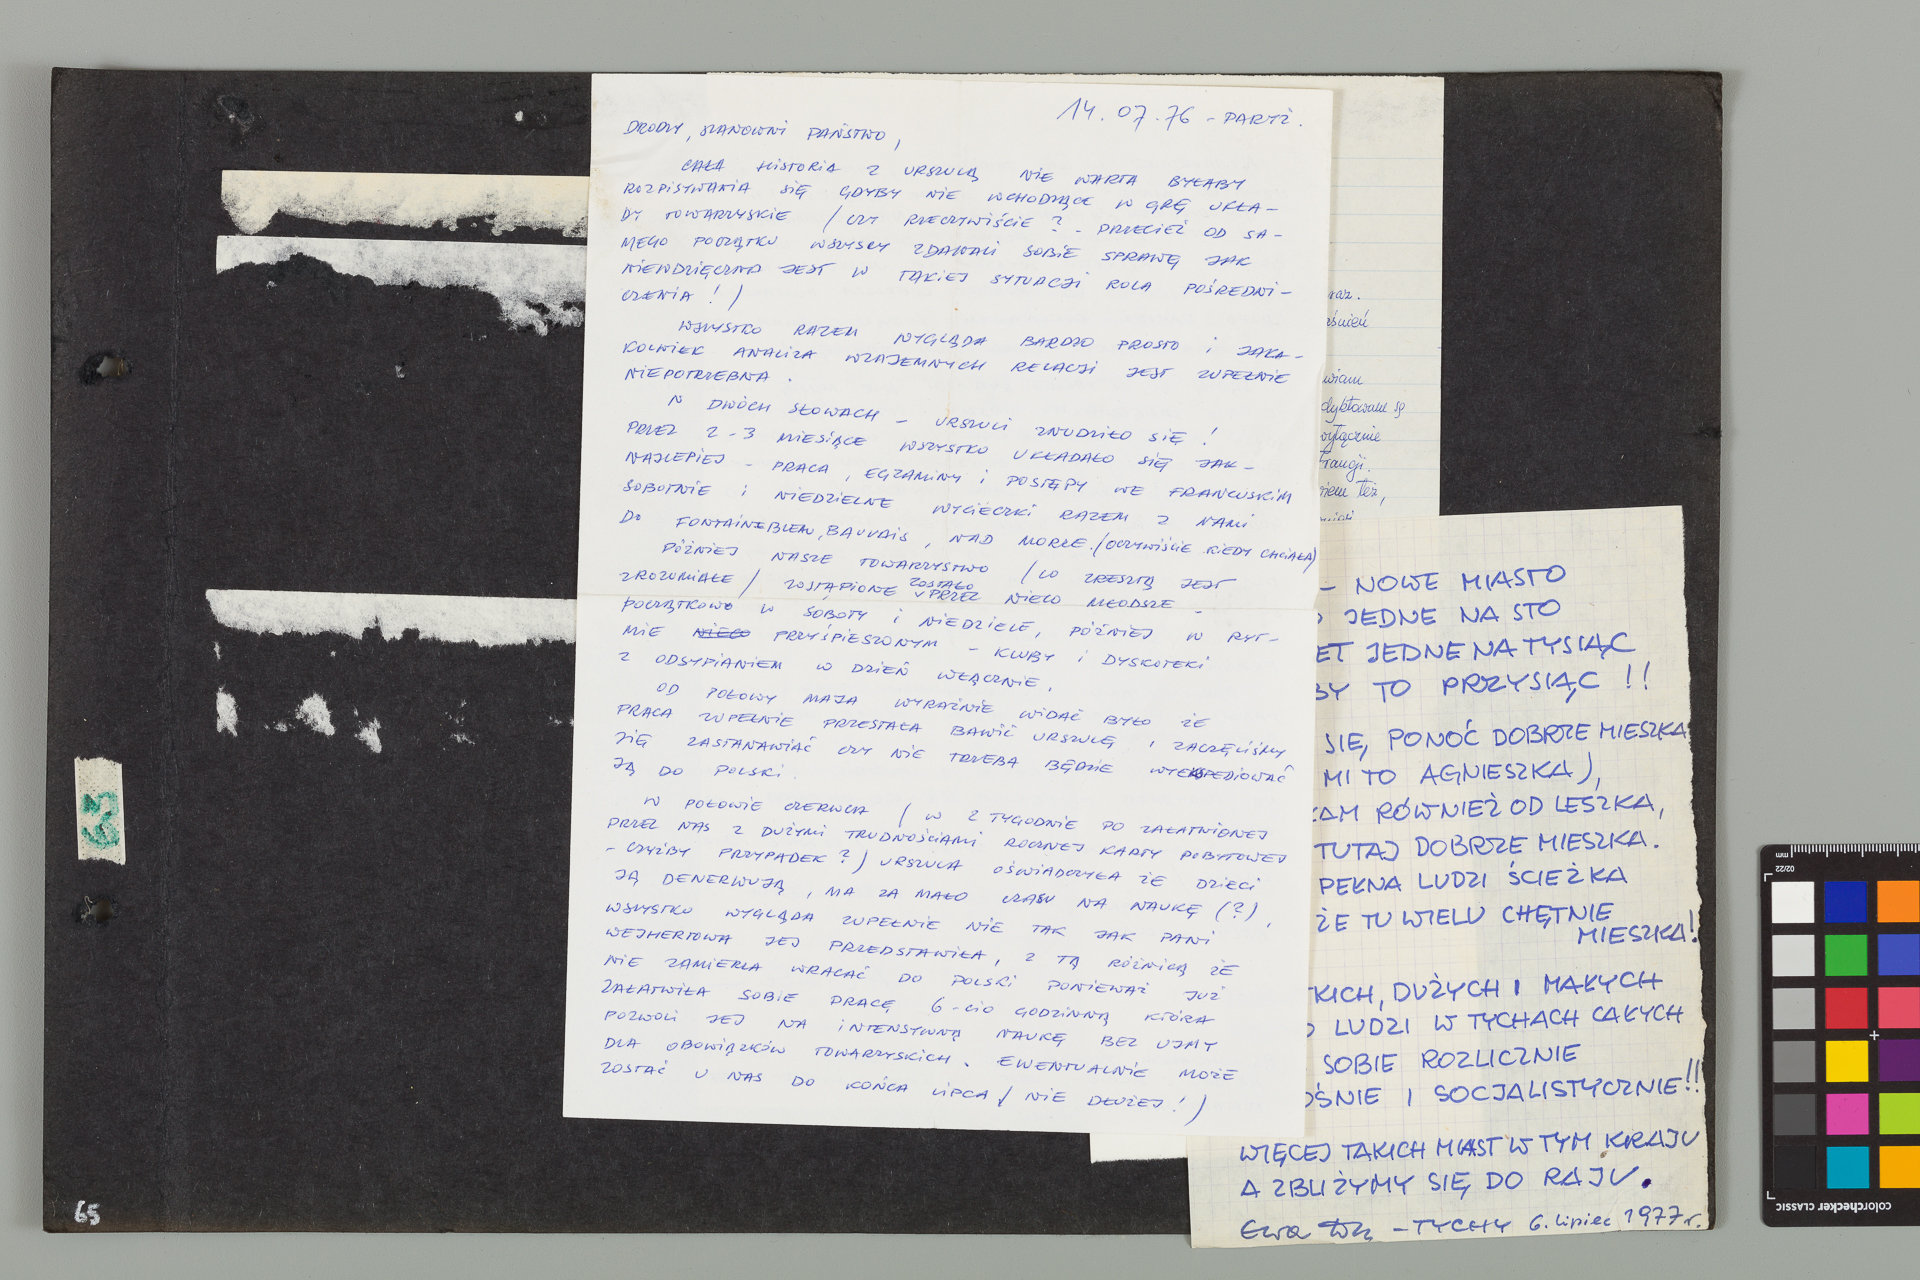 14.07.76 - PARYŻ.
DRODZY, SZANOWNI PAŃSTWO,
CAŁA HISTORIA Z URSZULĄ NIE WARTA BYŁABY
ROZPISYWANIA SIĘ GDYBY NIE WCHODZĄCE W GRĘ UKŁA-
DY TOWARZYSKIE / CZY RZECZYWIŚCIE ? - PRZECIEŻ OD SA-
MEGO POCZĄTKU WSZYSCY ZDAWALI SOBIE SPRAWĘ JAK
NIEWDZIĘCZNA JEST W TAKIEJ SYTUACJI ROLA POŚREDNI-
CZENIA ! )
WSZYSTKO RAZEM WYGLĄDA BARDZO PROSTO I JAKA-
KOLWIEK ANALIZA WZAJEMNYCH RELACJI JEST ZUPEŁNIE
NIEPOTRZEBNA .
W DWÓCH SŁOWACH - URSZULI ZNUDZIŁO SIĘ !
PRZEZ 2-3 MIESIĄCE WSZYSTKO UKŁADAŁO SIĘ JAK-
NAJLEPIEJ - PRACA, EGZAMINY I POSTĘPY WE FRANCUSKIM
SOBOTNIE I NIEDZIELNE WYCIECZKI RAZEM Z NAMI
DO FONTAINEBLEAU, BAUVAIS, NAD MORZE. (OCZYWIŚCIE KIEDY CHCIAŁA)
PÓŹNIEJ NASZE TOWARZYSTWO / CO ZRESZTĄ JEST
ZROZUMIAŁE / ZOSTĄPIONE ZOSTAŁO PRZEZ NIECO MŁODSZE -
POCZĄTKOWO W SOBOTY I NIEDZIELE, PÓŹNIEJ W RYT-
MIE NIECO PRZYŚPIESZONYM - KLUBY I DYSKOTEKI
Z ODSYPIANIEM W DZIEŃ WŁĄCZNIE.
OD POŁOWY MAJA WYRAŹNIE WIDAĆ BYŁO ŻE
PRACA ZUPEŁNIE PRZESTAŁA BAWIĆ URSZULĘ I ZACZĘLIŚMY
SIĘ ZASTANAWIAĆ CZY NIE TRZEBA BĘDZIE WYEKSPEDIOWAĆ
JĄ DO POLSKI.
W POŁOWIE CZERWCA / W 2 TYGODNIE PO ZAŁATWIONEJ
PRZEZ NAS Z DUŻYMI TRUDNOŚCIAMI ROCZNEJ KARTY POBYTOWEJ
- CZYŻBY PRZYPADEK ? ) URSZULA OŚWIADCZYŁA ŻE DZIECI
JĄ DENERWUJĄ, MA ZA MAŁO CZASU NA NAUKĘ (?),
WSZYSTKO WYGLĄDA ZUPEŁNIE NIE TAK JAK PANI
WEJHERTOWA JEJ PRZEDSTAWIŁA, Z TĄ RÓŻNICĄ ŻE
NIE ZAMIERZA WRACAĆ DO POLSKI PONIEWAŻ JUŻ
ZAŁATWIŁA SOBIE PRACĘ 6-CIO GODZINNĄ KTÓRA
POZWOLI JEJ NA INTENSYWNĄ NAUKĘ BEZ UJMY
DLA OBOWIĄZKÓW TOWARZYSKICH. EWENTUALNIE MOŻE
ZOSTAĆ U NAS DO KOŃCA LIPCA / NIE DŁUŻEJ ! )
raz.
wiam
dyktowane są
wyłącznie
- NOWE MIASTO
JEDNE NA STO
ET JEDNE NA TYSIĄC
BY TO PRZYSIĄC !!
SIĘ, PONOĆ DOBRZE MIESZKA
MI TO AGNIESZKA),
AM RÓWNIEŻ OD LESZKA,
TUTAJ DOBRZE MIESZKA.
PEŁNA LUDZI ŚCIEŻKA
ŻE TU WIELU CHĘTNIE
MIESZKA!
TKICH, DUŻYCH I MAŁYCH
LUDZI W TYCHACH CAŁYCH
SOBIE ROZLICZNIE
OŚNIE I SOCJALISTYCZNIE!!
WIĘCEJ TAKICH MIAST W TYM KRAJU
A ZBLIŻYMY SIĘ DO RAJU.
Ewa - TYCHY 6. lipiec 1977 r.
63
65
colorchecker CLASSIC
mm